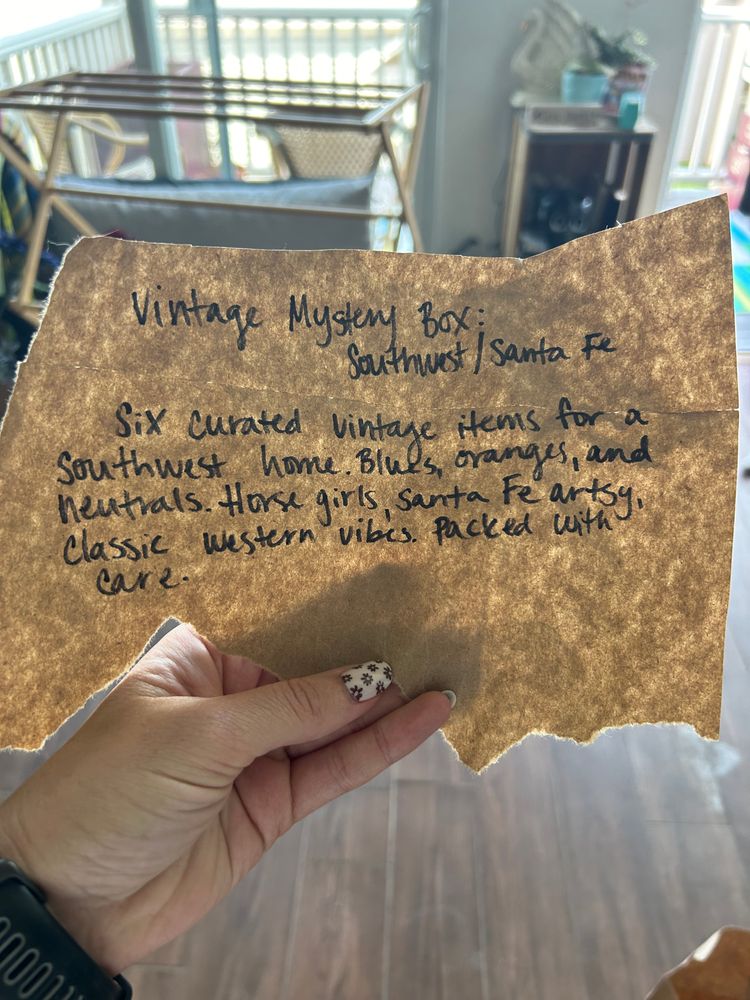 Vintage Mystery Box:
Southwest/Santa Fe
Six curated vintage items for a
Southwest home. Blues, oranges, and
neutrals. Horse girls, Santa Fe artsy,
Classic western vibes. Packed with
care.